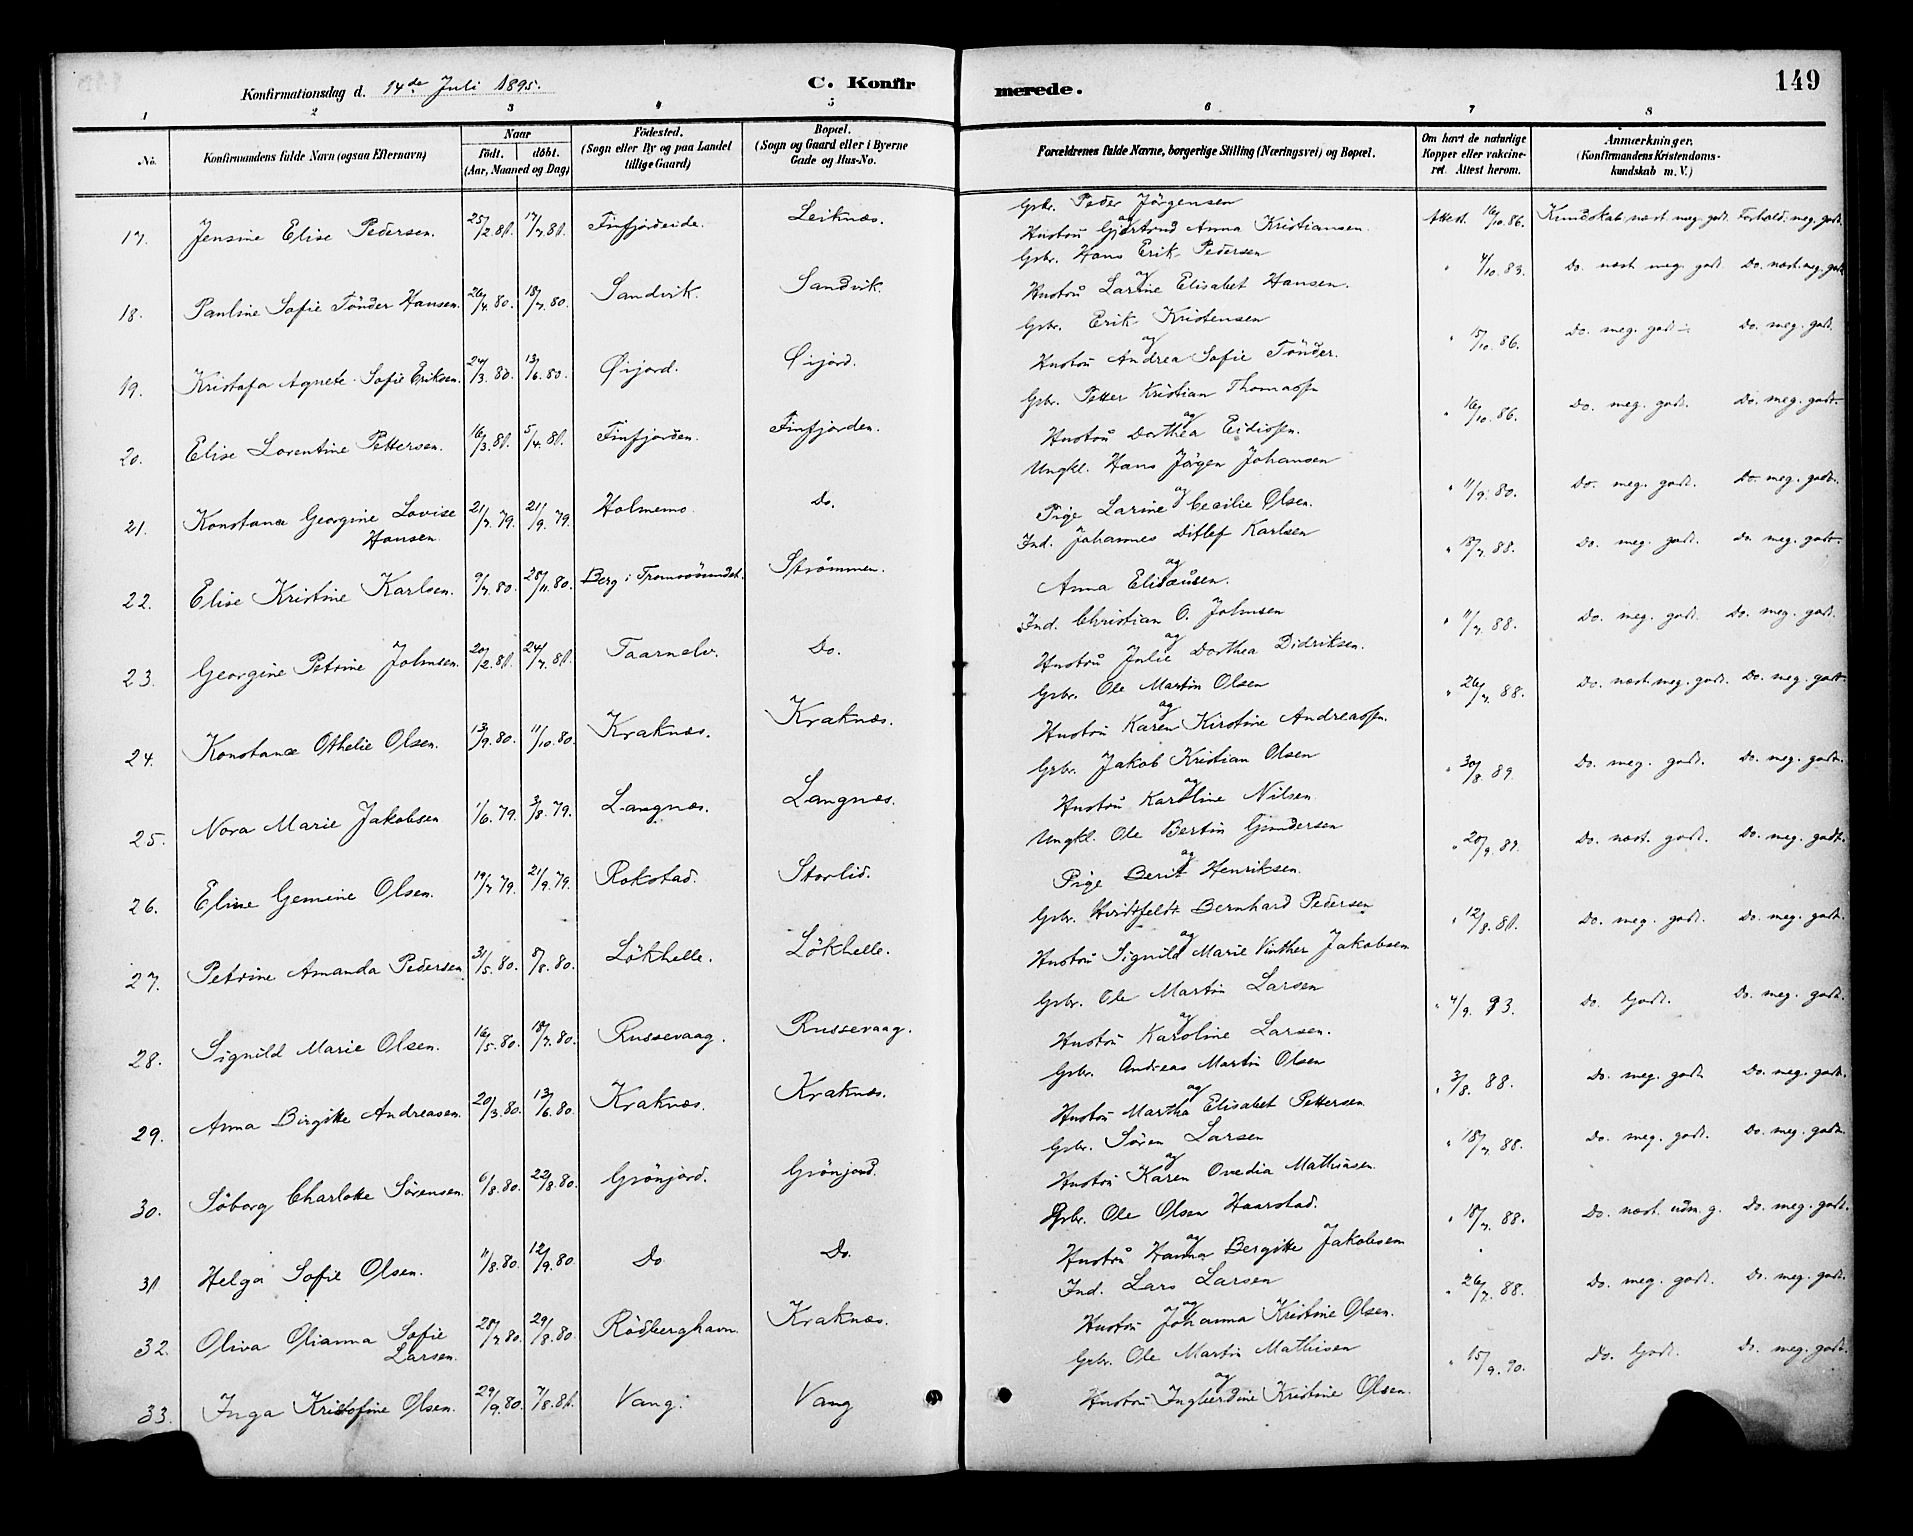 149
Konfirmationsdag d. 14de Juli 1895.
C. Konfirmerede.
1 2 3 4 5 6 7 8
No. Konfirmandens fulde Navn (ogsaa Efternavn) Naar født. døbt. (Aar, Maaned og Dag) Fødested. (Sogn eller By og paa Landet tillige Gaard) Bopæl. (Sogn og Gaard eller i Byerne Gade og Hus-No. Forældrenes fulde Navne, borgerlige Stilling (Næringsvei) og Bopæl. Om havt de naturlige Kopper eller vakcineret. Attest herom. Anmærkninger. (Konfirmandens Kristendomskundskab m. V.)
17. Jensine Elise Pedersen. 25/2.81. 17/7.81. Finfjordeide. Leiknæs. Gbr. Peder Jörgensen og Hustru Gjertrud Anna Kristiansen. Attest. 16/10.86. Kundskab næst meg. godt. Forhold. meg. godt.
18. Pauline Sofie Tönder Hansen. 26/4.80. 18/7.80. Sandvik. Sandvik. Gbr. Hans Erik Pedersen og Hustru Larine Elisabet Hansen. " 4/10.83. Do. næst meg. godt. Do. næst. meg. godt.
19. Kristofa Agnete Sofie Eriksen. 24/3.80. 13/6.80. Øijord. Øijord. Gbr. Erik Kristensen og Hustru Andrea Sofie Tönder. " 15/10.86. Do. meg. godt. Do. meg. godt.
20. Elise Lorentine Pettersen. 16/3.81. 5/4.81. Finfjorden. Finfjorden. Gbr. Petter Kristian Thomassen og Hustru Dorthea Eidissen. " 16/10.86. Do. meg. godt. Do. meg. godt.
21. Konstance Georgine Lovise Hansen. 21/7.79. 21/9.79. Holmemo. Do. Ungkl. Hans Jörgen Johansen og Pige Larine Cecilie Olsen. " 11/9.80. Do. meg. godt. Do. meg. godt.
22. Elise Kristine Karlsen. 9/7.80. 28/11.80. Berg i Tromsösundet. Strömmen. Ind. Johannes Ditlef Karlsen og Anna Elisæusen. " 18/7.88. Do. meg. godt. Do. meg. godt.
23. Georgine Petrine Johnsen. 20/2.81. 24/7.81. Taarnelv. Do. Ind. Christian O. Johnsen og Hustru Julie Dorthea Didriksen. " 11/7.88. Do. meg. godt. Do. meg. godt.
24. Konstance Othelie Olsen. 13/9.80. 11/10.80. Kraknæs. Kraknæs. Gbr. Ole Martin Olsen og Hustru Karen Kirstine Andreassen. " 26/7.88. Do. næst. meg. godt. Do. meg. godt.
25. Nora Marie Jakobsen 1/6.79. 3/8.79. Langnæs. Langnæs. Gbr. Jakob Kristian Olsen og Hustru Karoline Nilsen. " 30/8.89. Do. meg. godt. Do. meg. godt.
26. Eline Gemine Olsen. 19/7.79. 21/9.79. Rokstad. Storlid. Ungkl. Ole Bertin Gundersen og Pige Berit Henriksen. " 20/9.89. Do. næst. godt. Do. meg. godt.
27. Petrine Amanda Pedersen 31/5.80. 8/8.80. Lökhelle. Lökhelle. Gbr. Hvidtfeldt Bernhard Pedersen og Hustru Signild Marie Vinther Jakobsen " 12/8.81. Do. meg. godt. Do. meg. godt.
28. Signild Marie Olsen. 16/5.80. 18/7.80. Russevaag. Russevaag. Gbr. Ole Martin Larsen og Hustru Karoline Larsen. " 4/9.93. Do. Godt. Do. meg. godt.
29. Anna Birgitte Andreasen. 20/3.80. 13/6.80. Kraknæs. Kraknæs. Gbr. Andreas Martin Olsen og Hustru Martha Elisabet Pettersen. " 3/8.88. Do. meg. godt. Do. meg. godt.
30. Söborg Charlotte Sörensen. 6/8.80. 22/8.80. Grönjord. Grönjord. Gbr. Sören Larsen og Hustru Karen Ovedia Mathiasen. " 18/7.88. Do. meg. godt. Do. meg. godt.
31 Helga Sofie Olsen. 11/8.80. 12/9.80. Do Do. Gbr. Ole Olsen Haarstad. og Hustru Hanna Bergitte Jakobsen " 18/7.88. Do. næst. udm. g. Do. meg. godt.
32. Oliva Olianna Sofie Larsen. 28/7.80. 29/8.80. Rödberghavn. Kraknæs. Ind. Lars Larsen og Hustru Johanna Kristine Olsen. " 26/7.88. Do. meg. godt. Do. meg. godt.
33. Inga Kristofine Olsen. 29/9.80. 7/8.81. Vang. Vang Gbr. Ole Martin Mathisen og Hustru Ingberdine Kristine Olsen. " 15/9.90. Do. Godt. Do. meg. godt.